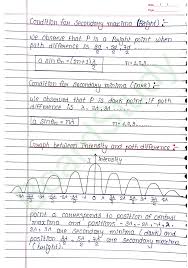 Condition for Secondary maxima (Bright) :-
We observe that P is a Bright point when
path difference is 3λ/2, 5λ/2, 7λ/2
a sin θn = (2n+1) λ/2 n = 1,2,3.
Condition for secondary minima (Dark)
We observed that P is dark point, if path
difference is λ, 2λ, 3λ
a sin θn = nλ n = 1,2,3.
Graph between Intensity and path difference
Intensity
point a corresponds to position of central
maxima and positions -3λ, -2λ, -λ, λ,
2λ, 3λ are secondary minima (dark) and
position are secondary maxima
(bright).